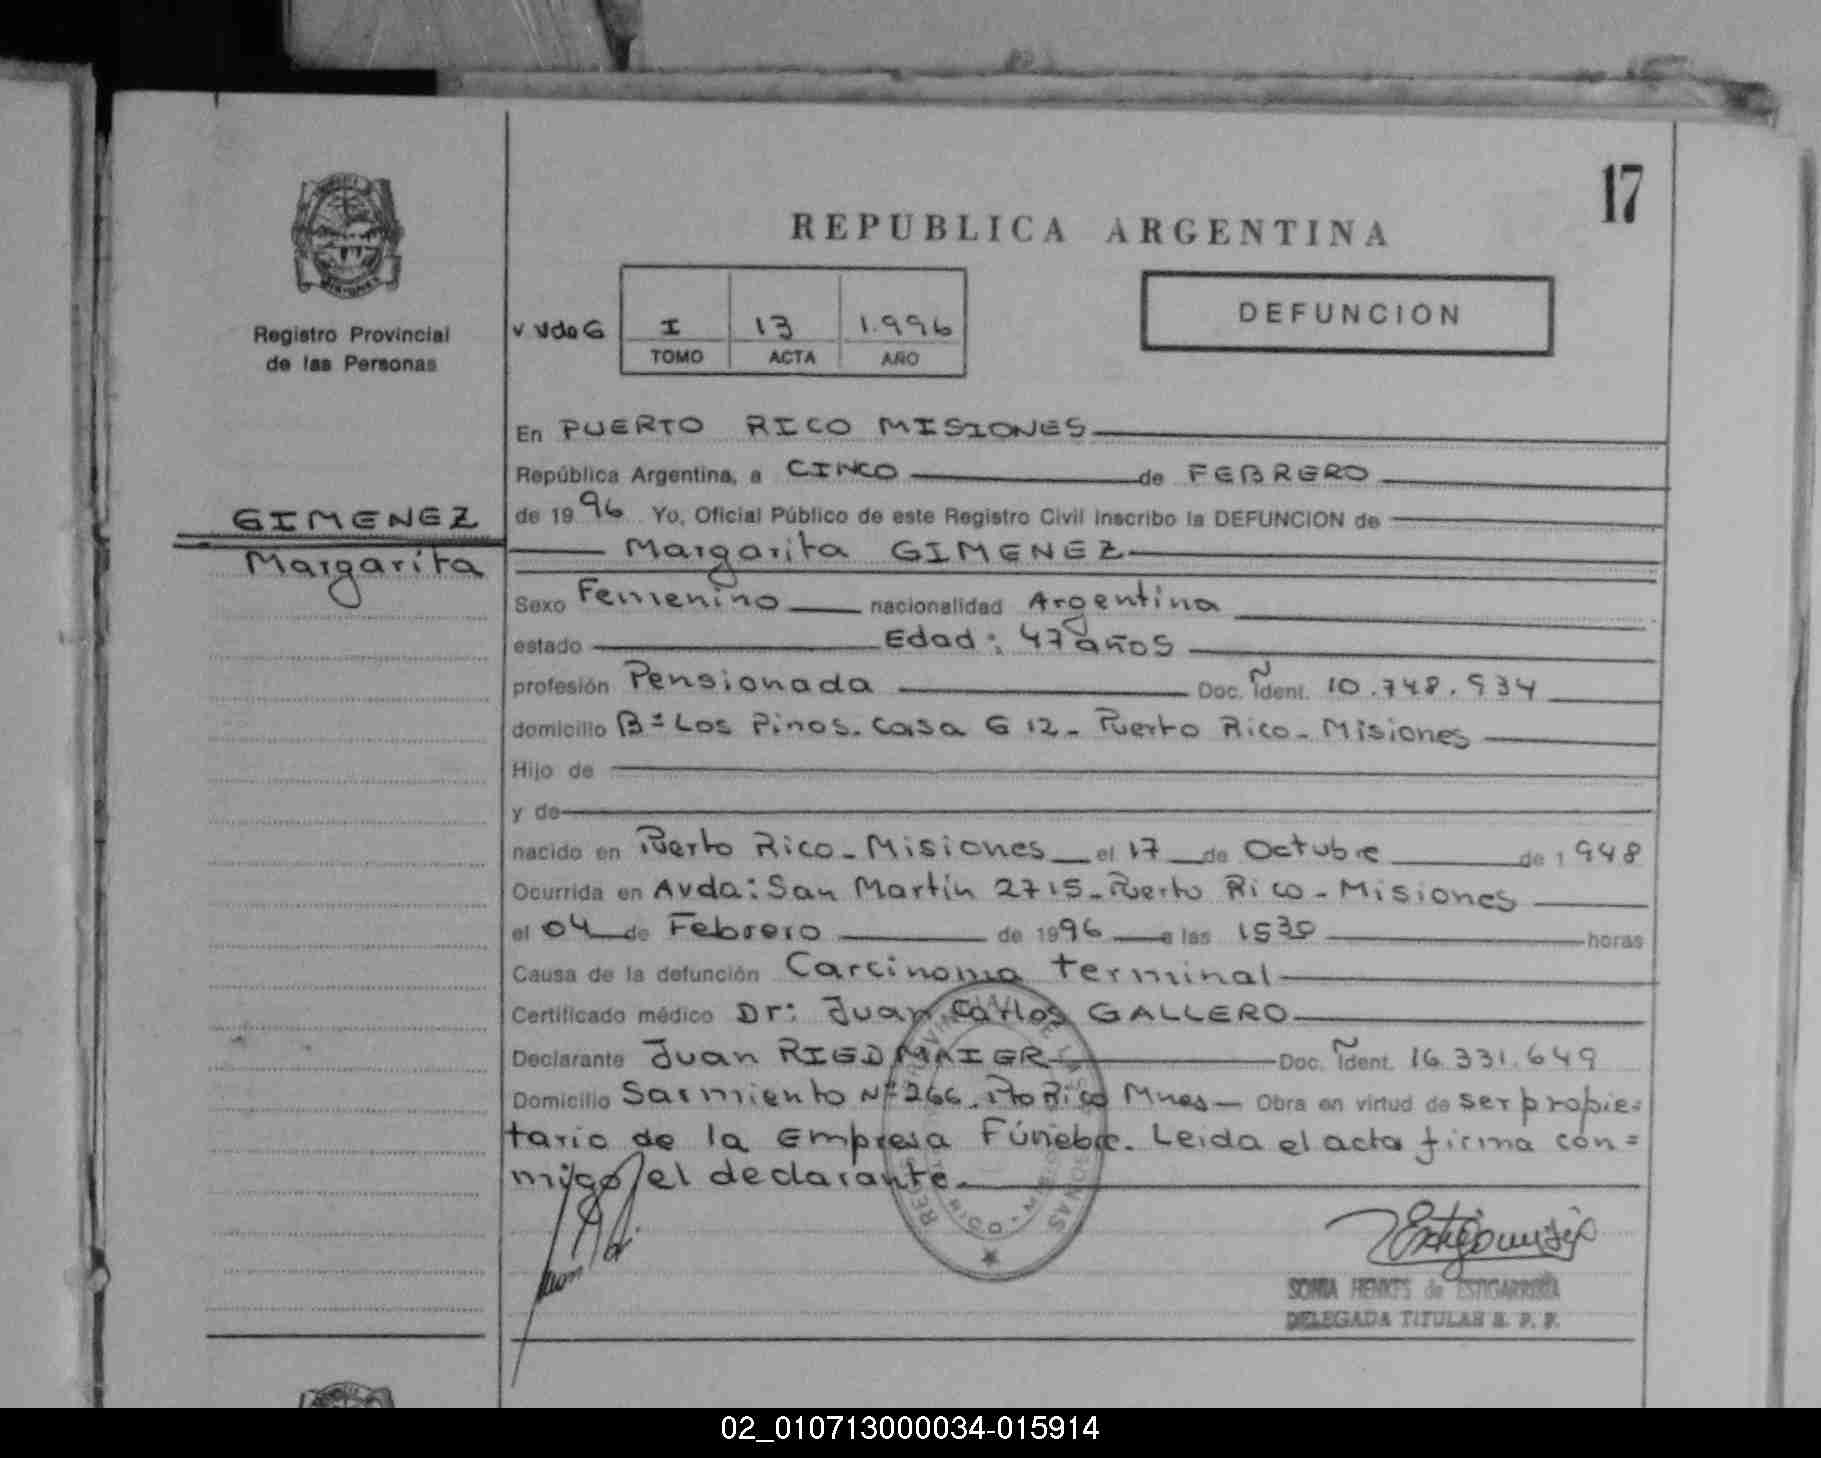 17
REPUBLICA ARGENTINA
DEFUNCION
Registro Provincial
de las Personas
v vda G I 13 1.996
TOMO ACTA AÑO
En PUERTO RICO MISIONES
República Argentina, a CINCO de FEBRERO
GIMENEZ
Margarita
de 1996 Yo, Oficial Público de este Registro Civil inscribo la DEFUNCION de
Margarita GIMENEZ
Sexo Femenino nacionalidad Argentina
estado Edad: 47 años
profesión Pensionada Doc. Ident. 10.748.934
domicilio Bº Los Pinos. Casa G 12 - Puerto Rico - Misiones
Hijo de
y de
nacido en Puerto Rico - Misiones el 17 de Octubre de 1948
Ocurrida en Avda: San Martín 2715 - Puerto Rico - Misiones
el 04 de Febrero de 1996 a las 1530 horas
Causa de la defunción Carcinoma terminal
Certificado médico Dr: Juan Carlos GALLERO
Declarante Juan RIEDMAIER Doc. Ident. 16.331.649
Domicilio Sarmiento Nº 266. Pto Rico Mnes - Obra en virtud de ser propie=
tario de la Empresa Fúnebre. Leida el acta firma con=
migo el declarante.
SONIA HENKES de ESTIGARRIBIA
DELEGADA TITULAR R. P. P.
02_010713000034-015914